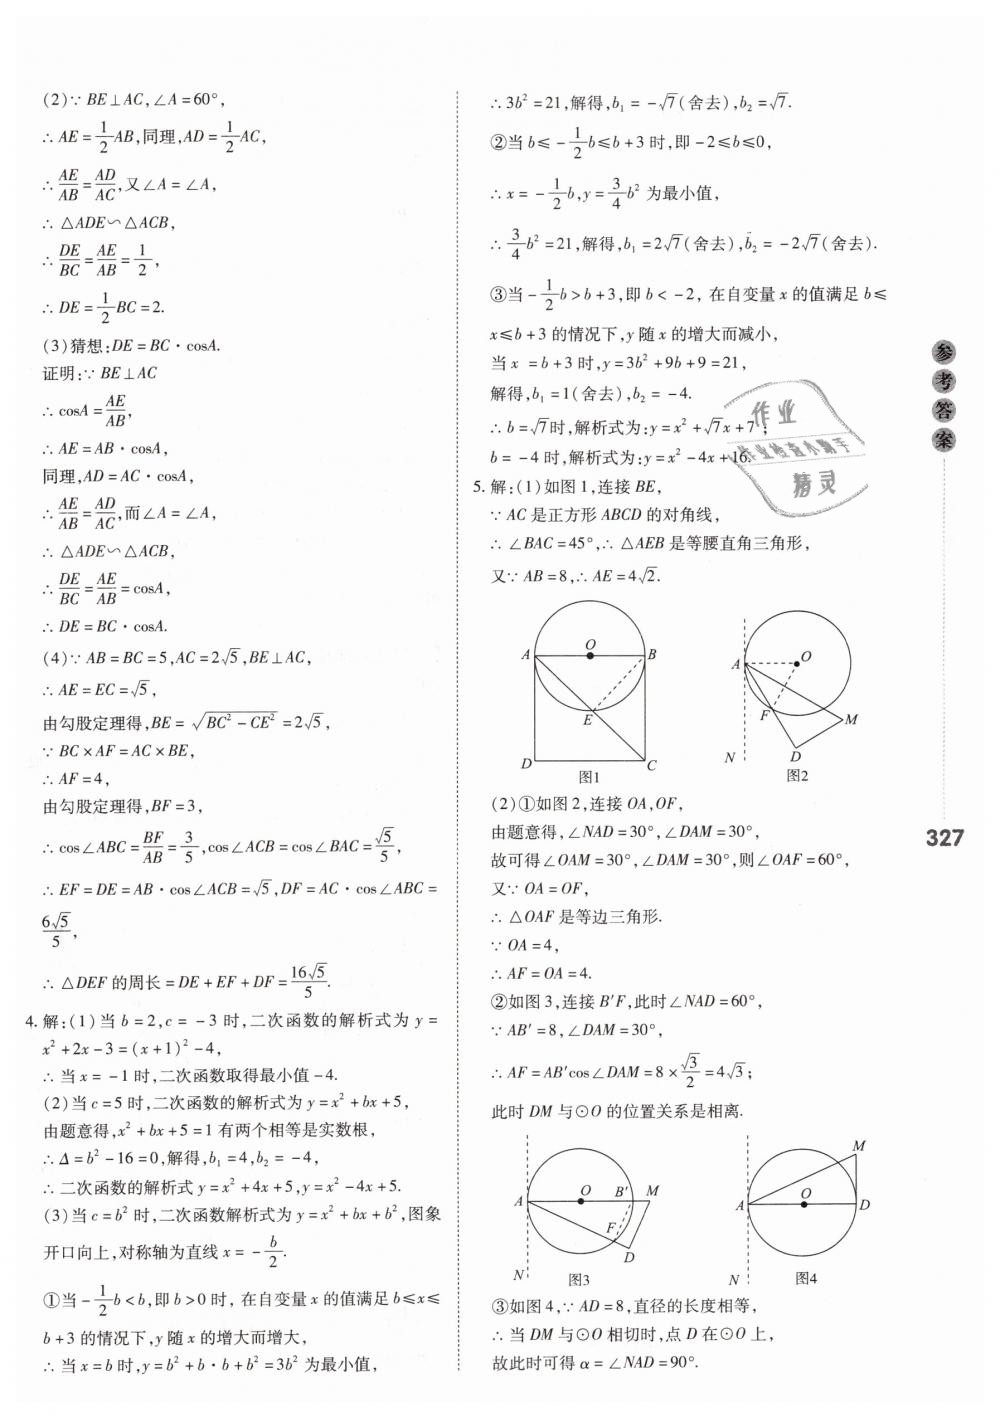 (2)∵ BE⊥AC,∠A=60°,
∴ AE=1/2AB,同理,AD=1/2AC,
∴ AE/AB=AD/AC,又∠A=∠A,
∴ △ADE∽△ACB,
∴ DE/BC=AE/AB=1/2,
∴ DE=1/2BC=2.
(3)猜想:DE=BC·cosA.
证明:∵ BE⊥AC
∴ cosA=AE/AB,
∴ AE=AB·cosA,
同理,AD=AC·cosA,
∴ AE/AB=AD/AC,而∠A=∠A,
∴ △ADE∽△ACB,
∴ DE/BC=AE/AB=cosA,
∴ DE=BC·cosA.
(4)∵ AB=BC=5,AC=2√5,BE⊥AC,
∴ AE=EC=√5,
由勾股定理得,BE=√(BC²-CE²)=2√5,
∵ BC×AF=AC×BE,
∴ AF=4,
由勾股定理得,BF=3,
∴ cos∠ABC=BF/AB=3/5,cos∠ACB=cos∠BAC=√5/5,
∴ EF=DE=AB·cos∠ACB=√5,DF=AC·cos∠ABC=
6√5/5,
∴ △DEF的周长=DE+EF+DF=16√5/5.
4.解:(1)当b=2,c=-3时,二次函数的解析式为y=
x²+2x-3=(x+1)²-4,
∴ 当x=-1时,二次函数取得最小值-4.
(2)当c=5时,二次函数的解析式为y=x²+bx+5,
由题意得,x²+bx+5=1有两个相等是实数根,
∴ Δ=b²-16=0,解得,b₁=4,b₂=-4,
∴ 二次函数的解析式y=x²+4x+5,y=x²-4x+5.
(3)当c=b²时,二次函数解析式为y=x²+bx+b²,图象
开口向上,对称轴为直线x=-b/2.
①当-1/2b<b,即b>0时,在自变量x的值满足b≤x≤
b+3的情况下,y随x的增大而增大,
∴ 当x=b时,y=b²+b·b+b²=3b²为最小值,
∴ 3b²=21,解得,b₁=-√7(舍去),b₂=√7.
②当b≤-1/2b≤b+3时,即-2≤b≤0,
∴ x=-1/2b,y=3/4b²为最小值,
∴ 3/4b²=21,解得,b₁=2√7(舍去),b₂=-2√7(舍去).
③当-1/2b>b+3,即b<-2,在自变量x的值满足b≤
x≤b+3的情况下,y随x的增大而减小,
当x=b+3时,y=3b²+9b+9=21,
解得,b₁=1(舍去),b₂=-4.
∴ b=√7时,解析式为:y=x²+√7x+7;
b=-4时,解析式为:y=x²-4x+16.
5.解:(1)如图1,连接BE,
∵ AC是正方形ABCD的对角线,
∴ ∠BAC=45°,∴ △AEB是等腰直角三角形,
又∵ AB=8,∴ AE=4√2.
A O B E D C
图1
A O F M N D
图2
(2)①如图2,连接OA,OF,
由题意得,∠NAD=30°,∠DAM=30°,
故可得∠OAM=30°,∠DAM=30°,则∠OAF=60°,
又∵ OA=OF,
∴ △OAF是等边三角形.
∵ OA=4,
∴ AF=OA=4.
②如图3,连接B′F,此时∠NAD=60°,
∵ AB′=8,∠DAM=30°,
∴ AF=AB′cos∠DAM=8×√3/2=4√3;
此时DM与⊙O的位置关系是相离.
A O B′ M F D N
图3
M A O D N
图4
③如图4,∵ AD=8,直径的长度相等,
∴ 当DM与⊙O相切时,点D在⊙O上,
故此时可得α=∠NAD=90°.
参考答案
327
作业
作业检查小助手
精灵